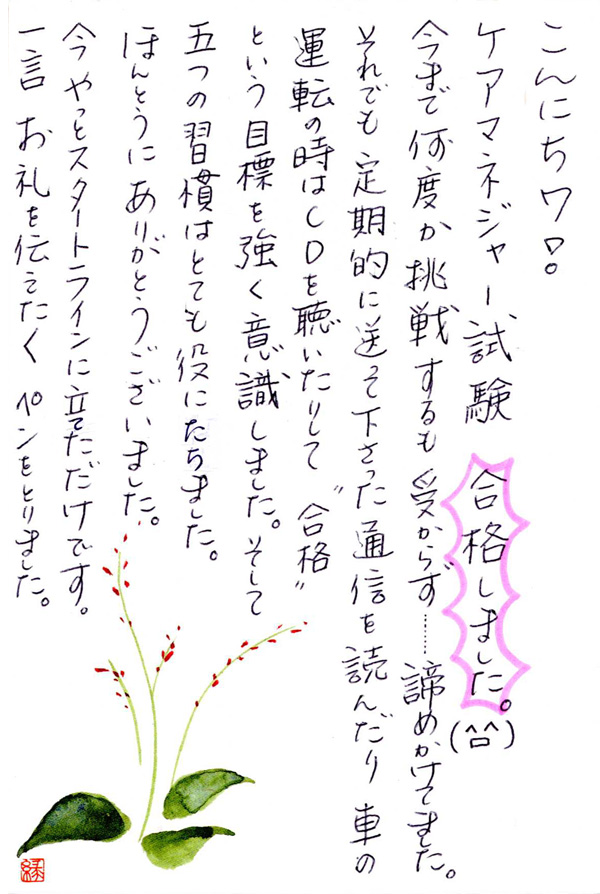 こんにちワ!
ケアマネジャー試験 合格しました。(^ロ^)
今まで何度か挑戦するも受からず……諦めかけてました。
それでも定期的に送って下さった通信を読んだり 車の
運転の時はCDを聴いたりして "合格"
という目標を強く意識しました。そして
五つの習慣はとても役にたちました。
ほんとうに ありがとうございました。
今 やっとスタートラインに立てただけです。
一言 お礼を伝えたく ペンをとりました。
緑